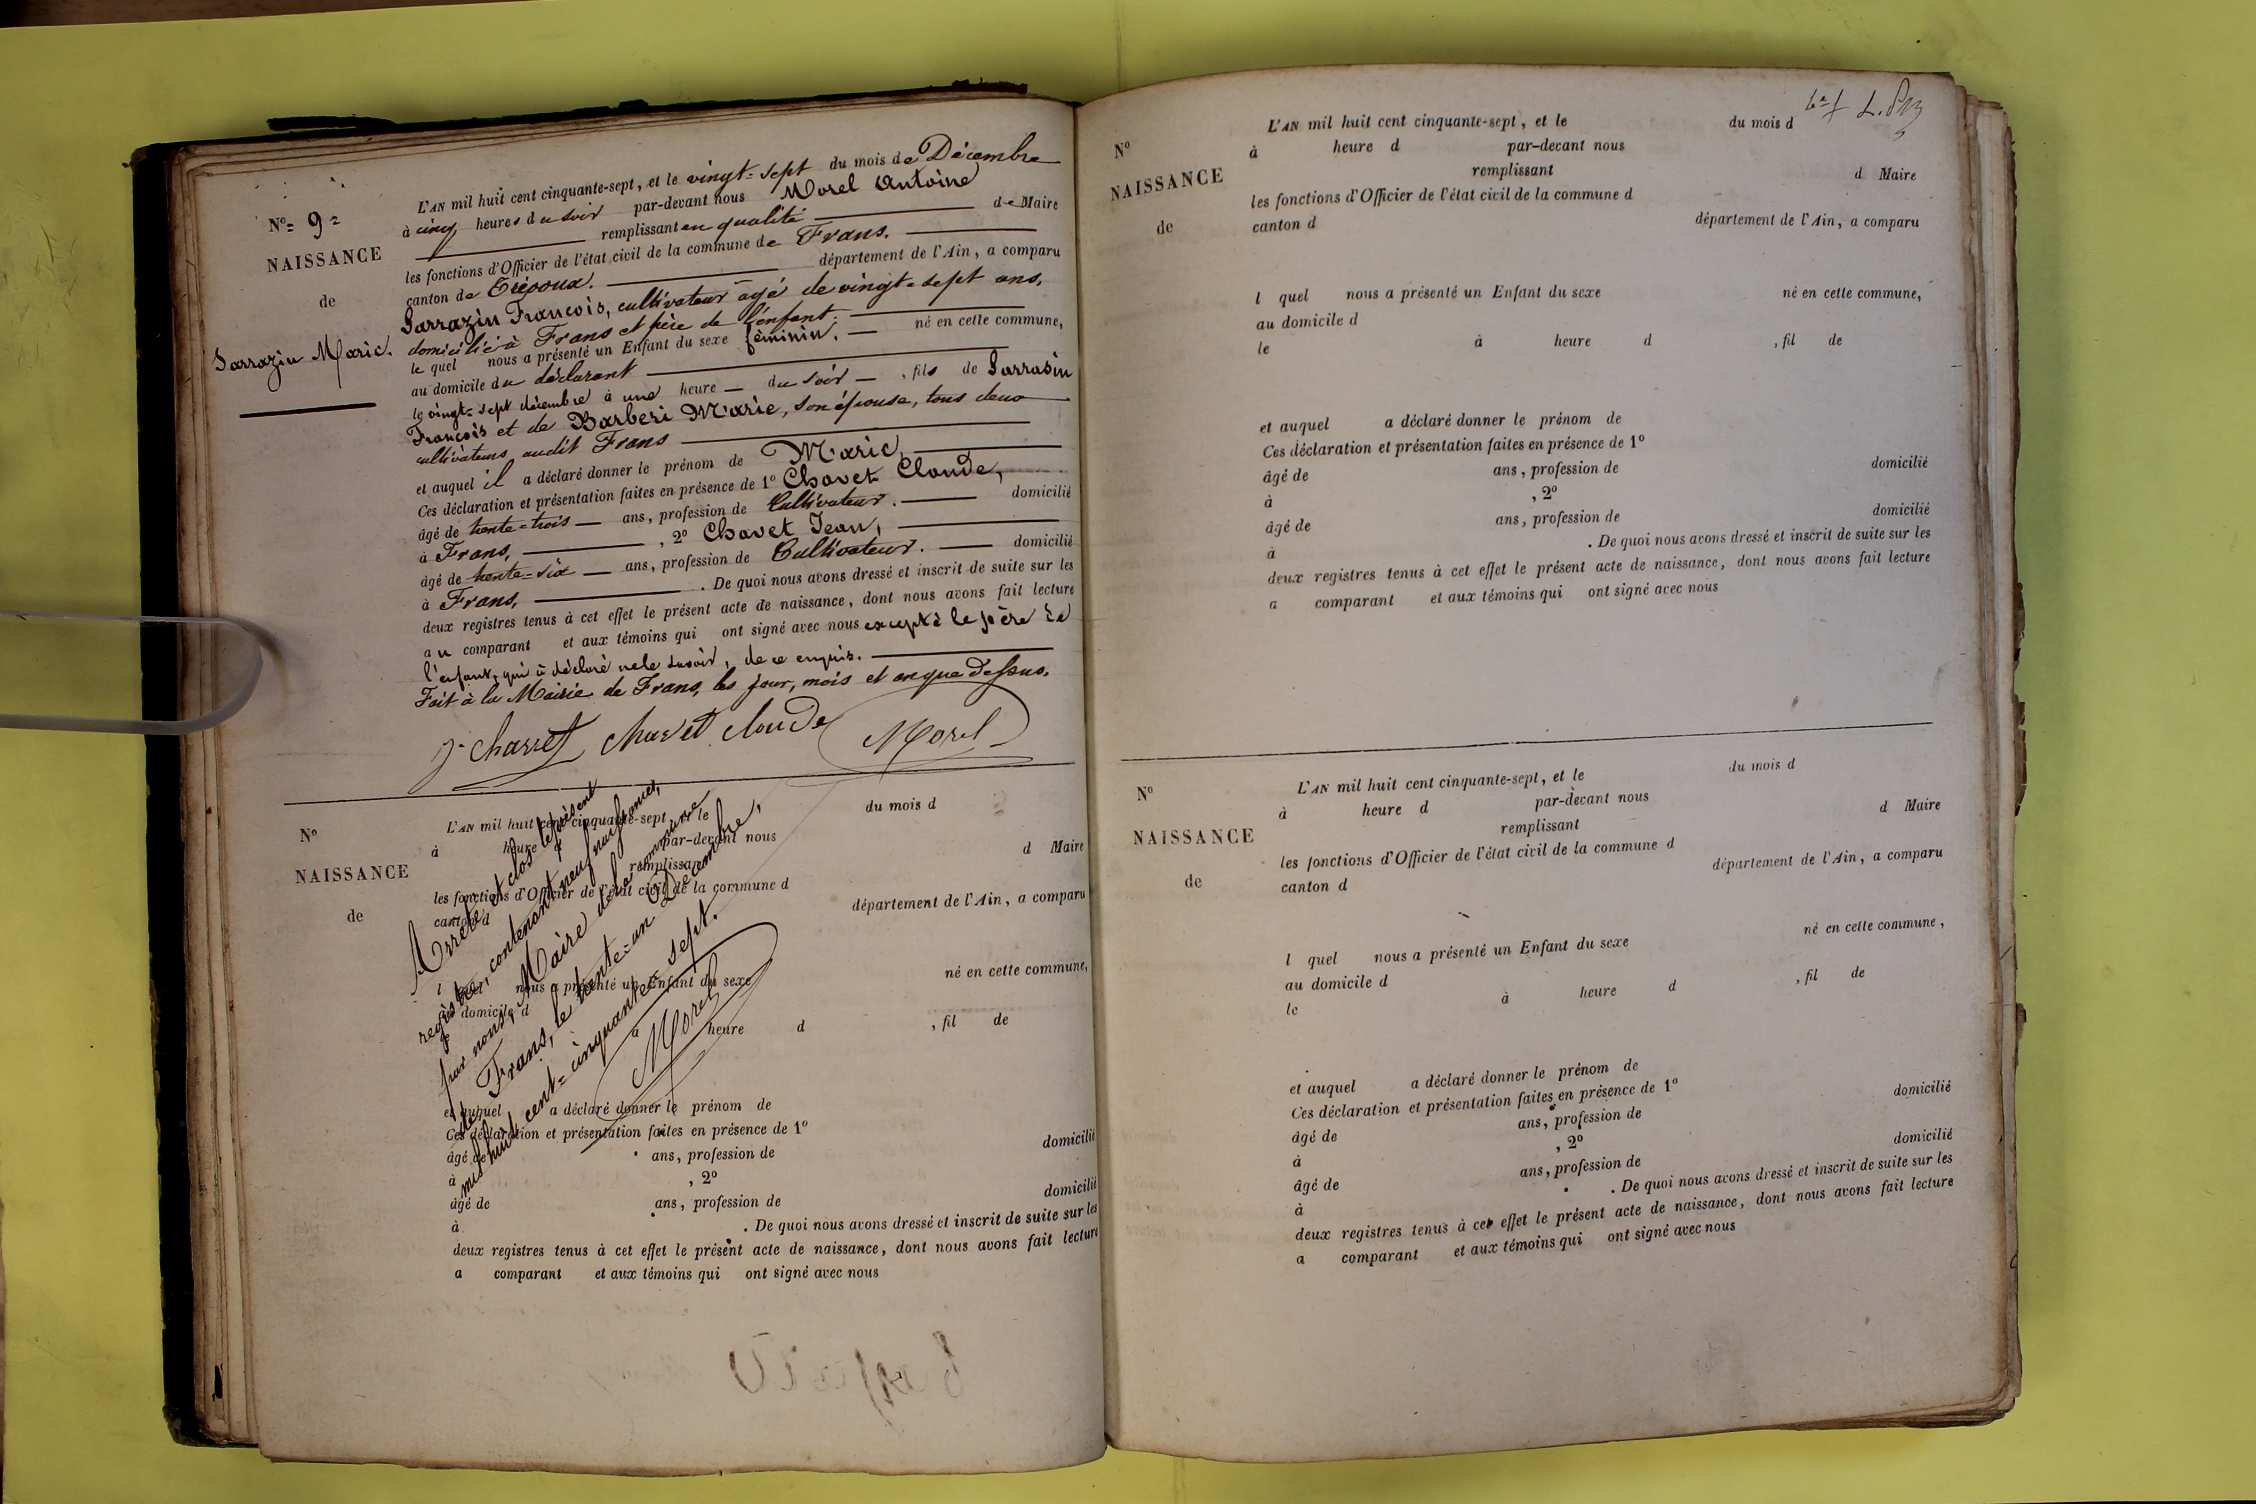 Nº = 9 =
NAISSANCE
de
Sarrazin Marie.
L'AN mil huit cent cinquante-sept, et le vingt-sept du mois de Décembre
à cinq heures du soir par-devant nous Morel Antoine
remplissant en qualité de Maire
les fonctions d'Officier de l'état civil de la commune de Frans.
canton de Trévoux. département de l'Ain, a comparu
Sarrazin François, cultivateur âgé de vingt-sept ans,
domicilié à Frans et père de l'enfant.
le quel nous a présenté un Enfant du sexe féminin. né en cette commune,
au domicile du déclarant
le vingt-sept décembre à une heure du soir, fils de Sarrasin
François et de Barberi Marie, son épouse, tous deux
cultivateurs audit Frans
et auquel il a déclaré donner le prénom de Marie,
Ces déclaration et présentation faites en présence de 1º Chavet Claude,
âgé de trente-trois ans, profession de Cultivateur. domicilié
à Frans, , 2º Chavet Jean,
âgé de trente-six ans, profession de Cultivateur. domicilié
à Frans, . De quoi nous avons dressé et inscrit de suite sur les
deux registres tenus à cet effet le présent acte de naissance, dont nous avons fait lecture
au comparant et aux témoins qui ont signé avec nous excepté le père de
l'enfant, qui a déclaré ne le savoir, de ce enquis.
Fait à la Mairie de Frans, les jour, mois et an que dessus.
chavet claude Morel
Nº
NAISSANCE
de
L'AN mil huit cent cinquante-sept, et le du mois d
à heure d par-devant nous
remplissant d Maire
les fonctions d'Officier de l'état civil de la commune d
canton d département de l'Ain, a comparu
l quel nous a présenté un Enfant du sexe né en cette commune,
au domicile d
le à heure d , fil de
et auquel a déclaré donner le prénom de
Ces déclaration et présentation faites en présence de 1º
âgé de ans, profession de domicilié
à , 2º
âgé de ans, profession de domicilié
à . De quoi nous avons dressé et inscrit de suite sur les
deux registres tenus à cet effet le présent acte de naissance, dont nous avons fait lecture
a comparant et aux témoins qui ont signé avec nous
Arrêté et clos le présent
registre, contenant neuf naissances,
par nous, Maire de la commune
de Frans, le trente-un Décembre,
mil huit cent-cinquante sept.
Morel
Nº
NAISSANCE
de
L'AN mil huit cent cinquante-sept, et le du mois d
à heure d par-devant nous
remplissant d Maire
les fonctions d'Officier de l'état civil de la commune d
canton d département de l'Ain, a comparu
l quel nous a présenté un Enfant du sexe né en cette commune,
au domicile d
le à heure d , fil de
et auquel a déclaré donner le prénom de
Ces déclaration et présentation faites en présence de 1º
âgé de ans, profession de domicilié
à , 2º
âgé de ans, profession de domicilié
à . De quoi nous avons dressé et inscrit de suite sur les
deux registres tenus à cet effet le présent acte de naissance, dont nous avons fait lecture
a comparant et aux témoins qui ont signé avec nous
Nº
NAISSANCE
de
L'AN mil huit cent cinquante-sept, et le du mois d
à heure d par-devant nous
remplissant d Maire
les fonctions d'Officier de l'état civil de la commune d
canton d département de l'Ain, a comparu
l quel nous a présenté un Enfant du sexe né en cette commune,
au domicile d
le à heure d , fil de
et auquel a déclaré donner le prénom de
Ces déclaration et présentation faites en présence de 1º
âgé de ans, profession de domicilié
à , 2º
âgé de ans, profession de domicilié
à . De quoi nous avons dressé et inscrit de suite sur les
deux registres tenus à cet effet le présent acte de naissance, dont nous avons fait lecture
a comparant et aux témoins qui ont signé avec nous